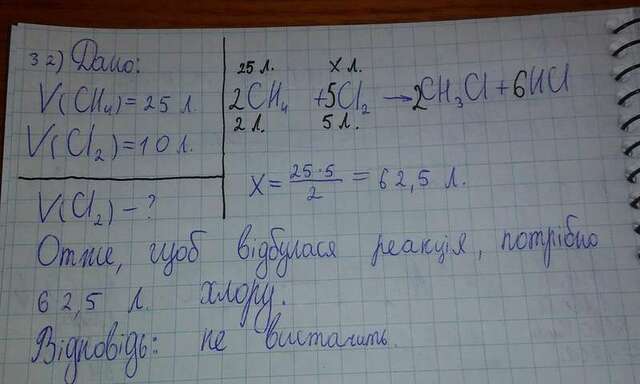 32) Дано:
V(CH₄) = 25 л.
V(Cl₂) = 10 л.
V(Cl₂) - ?
25 л. x л.
2CH₄ + 5Cl₂ → 2CH₃Cl + 6HCl
2 л. 5 л.
X = 25·5/2 = 62,5 л.
Отже, щоб відбулася реакція, потрібно
62,5 л. хлору.
Відповідь: не вистачить.